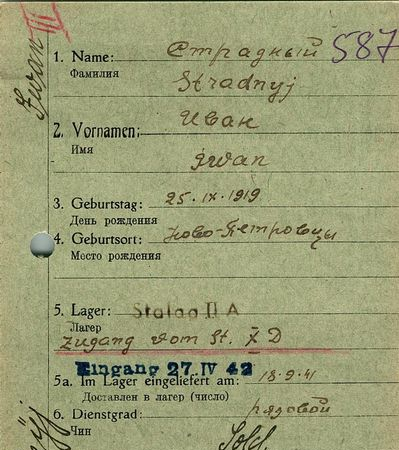 Iwan
III
587
1. Name: Страдный
Фамилия
Stradnyj
2. Vornamen: Иван
Имя
Iwan
3. Geburtstag: 25·IX·1919
День рождения
4. Geburtsort: Ново-Петровцы
Место рождения
5. Lager: Stalag II A
Лагер
Zugang vom St. X D
Eingang 27. IV 42
5a. Im Lager eingeliefert am: 18·9·41
Доставлен в лагер (число)
6. Dienstgrad: рядовой
Чин
Sold.